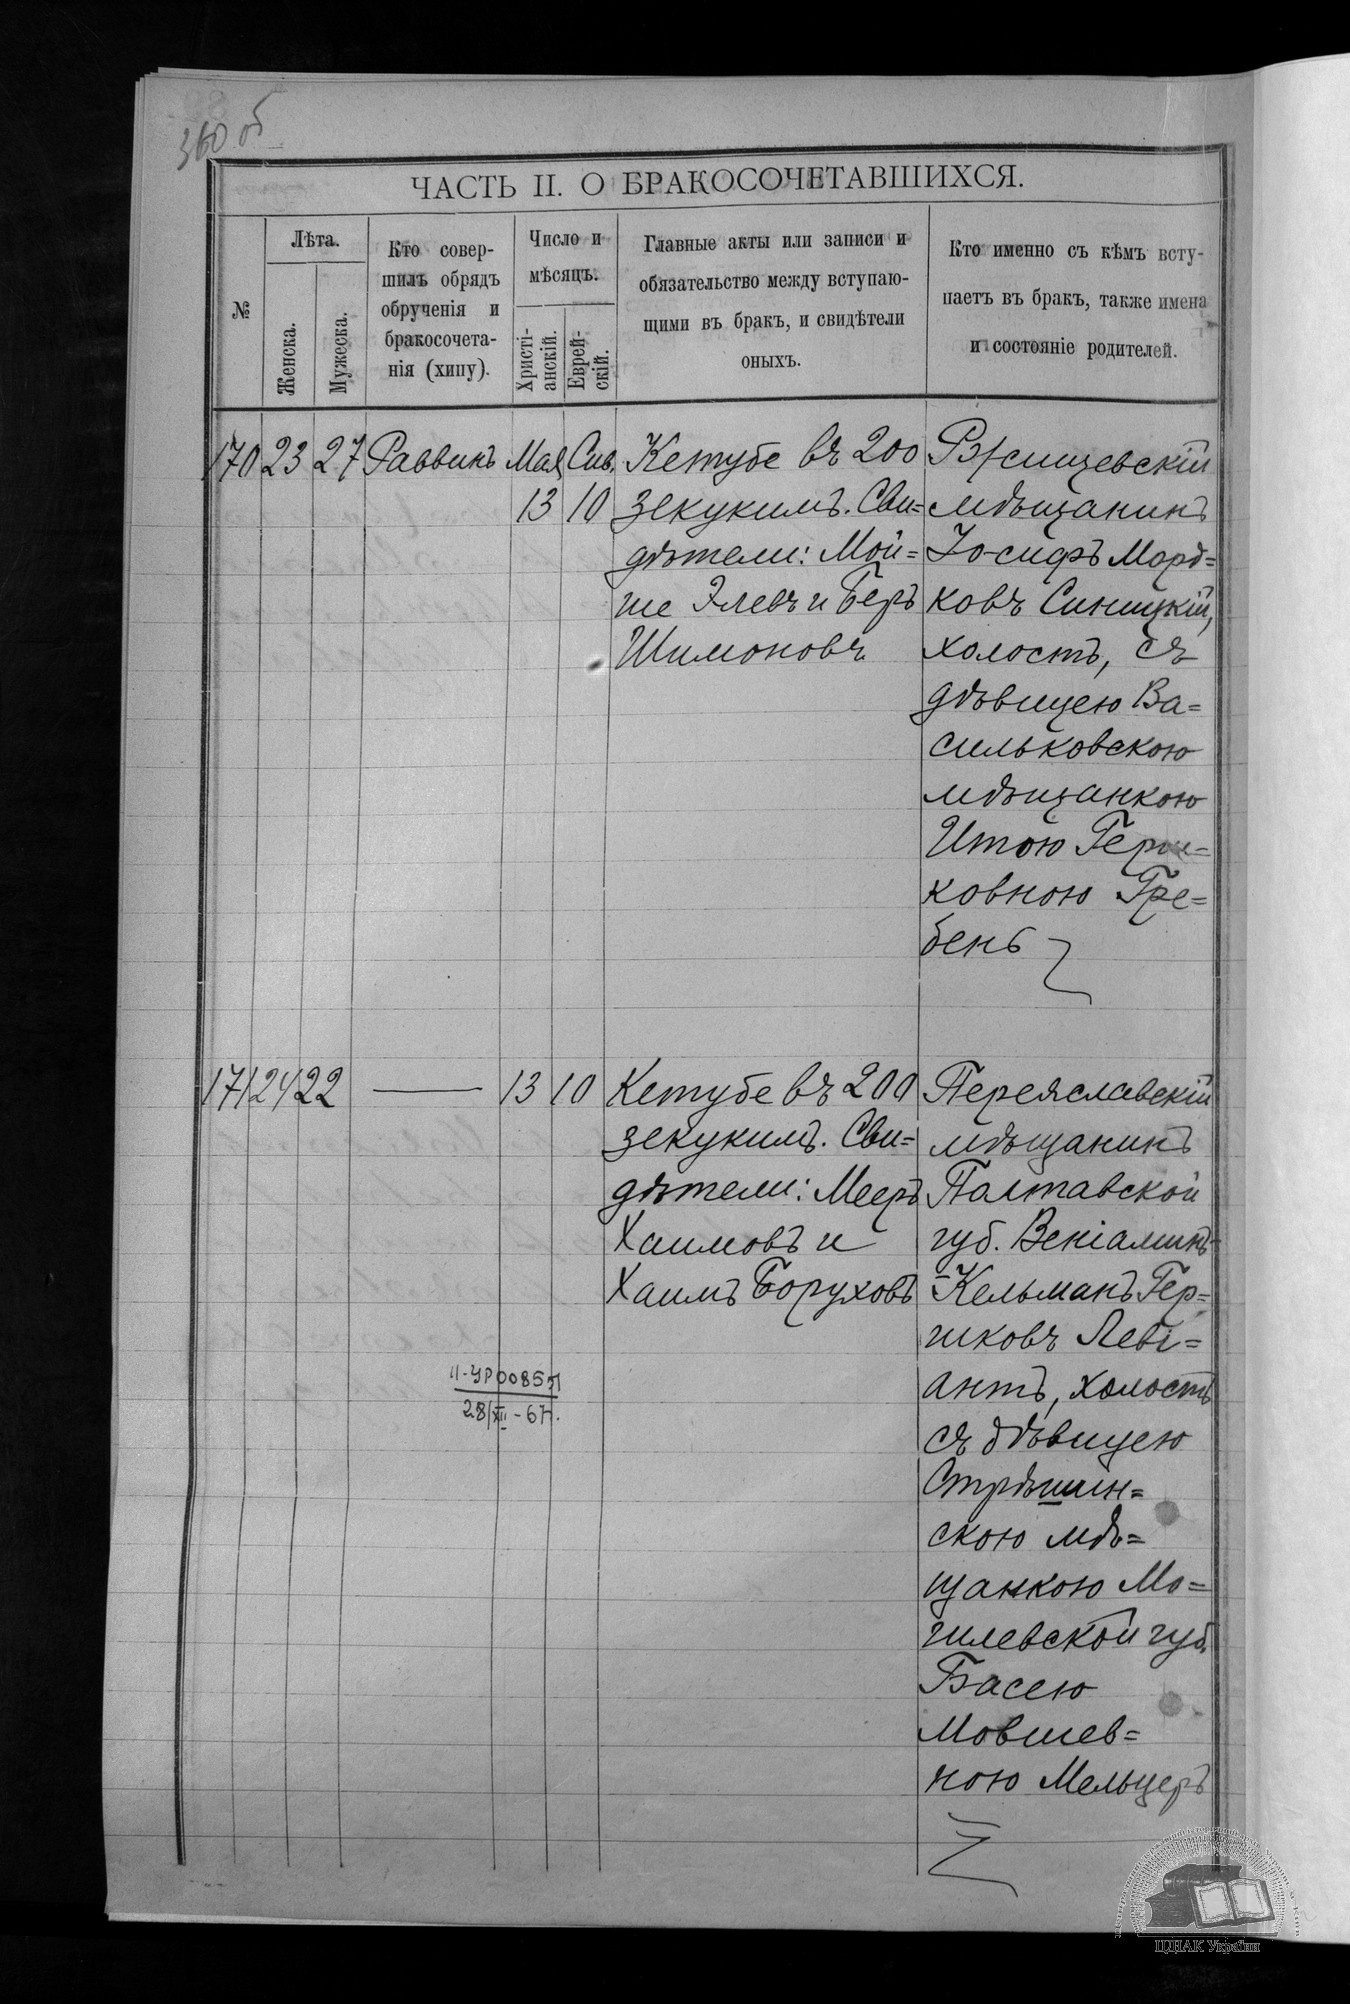 360 об
ЧАСТЬ II. О БРАКОСОЧЕТАВШИХСЯ.
№
Лѣта.
Женска.
Мужеска.
Кто совер-
шилъ обрядъ
обрученія и
бракосочета-
нія (хипу).
Число и
мѣсяцъ.
Христі-
анскій.
Еврей-
скій.
Главные акты или записи и
обязательство между вступаю-
щими въ бракъ, и свидѣтели
оныхъ.
Кто именно съ кѣмъ всту-
паетъ въ бракъ, также имена
и состояніе родителей.
170 23 27 Раввинъ Мая Сив.
13 10
Кетубе въ 200
зекукимъ. Сви=
дѣтели: Мой=
ше Элевъ и Беръ
Шимоновъ
Ржищевскій
мѣщанинъ
Іосифъ Морд=
ковъ Синицкій,
холостъ, съ
дѣвицею Ва=
сильковскою
мѣщанкою
Итою Герш=
ковною Гре=
бень
171 24 22 — 13 10
Кетубе въ 200
зекукимъ. Сви=
дѣтели: Мееръ
Хаимовъ и
Хаимъ Боруховъ
Переяславскій
мѣщанинъ
Полтавской
губ. Веніаминъ-
-Кельманъ Гер=
шковъ Леві=
антъ, холостъ
съ дѣвицею
Стрѣшин=
скою мѣ=
щанкою Мо=
гилевской губ.
Басею
Мовшев=
ною Мельцеръ
II-УР 00857
28/XII-67г.
ЦДІАК України